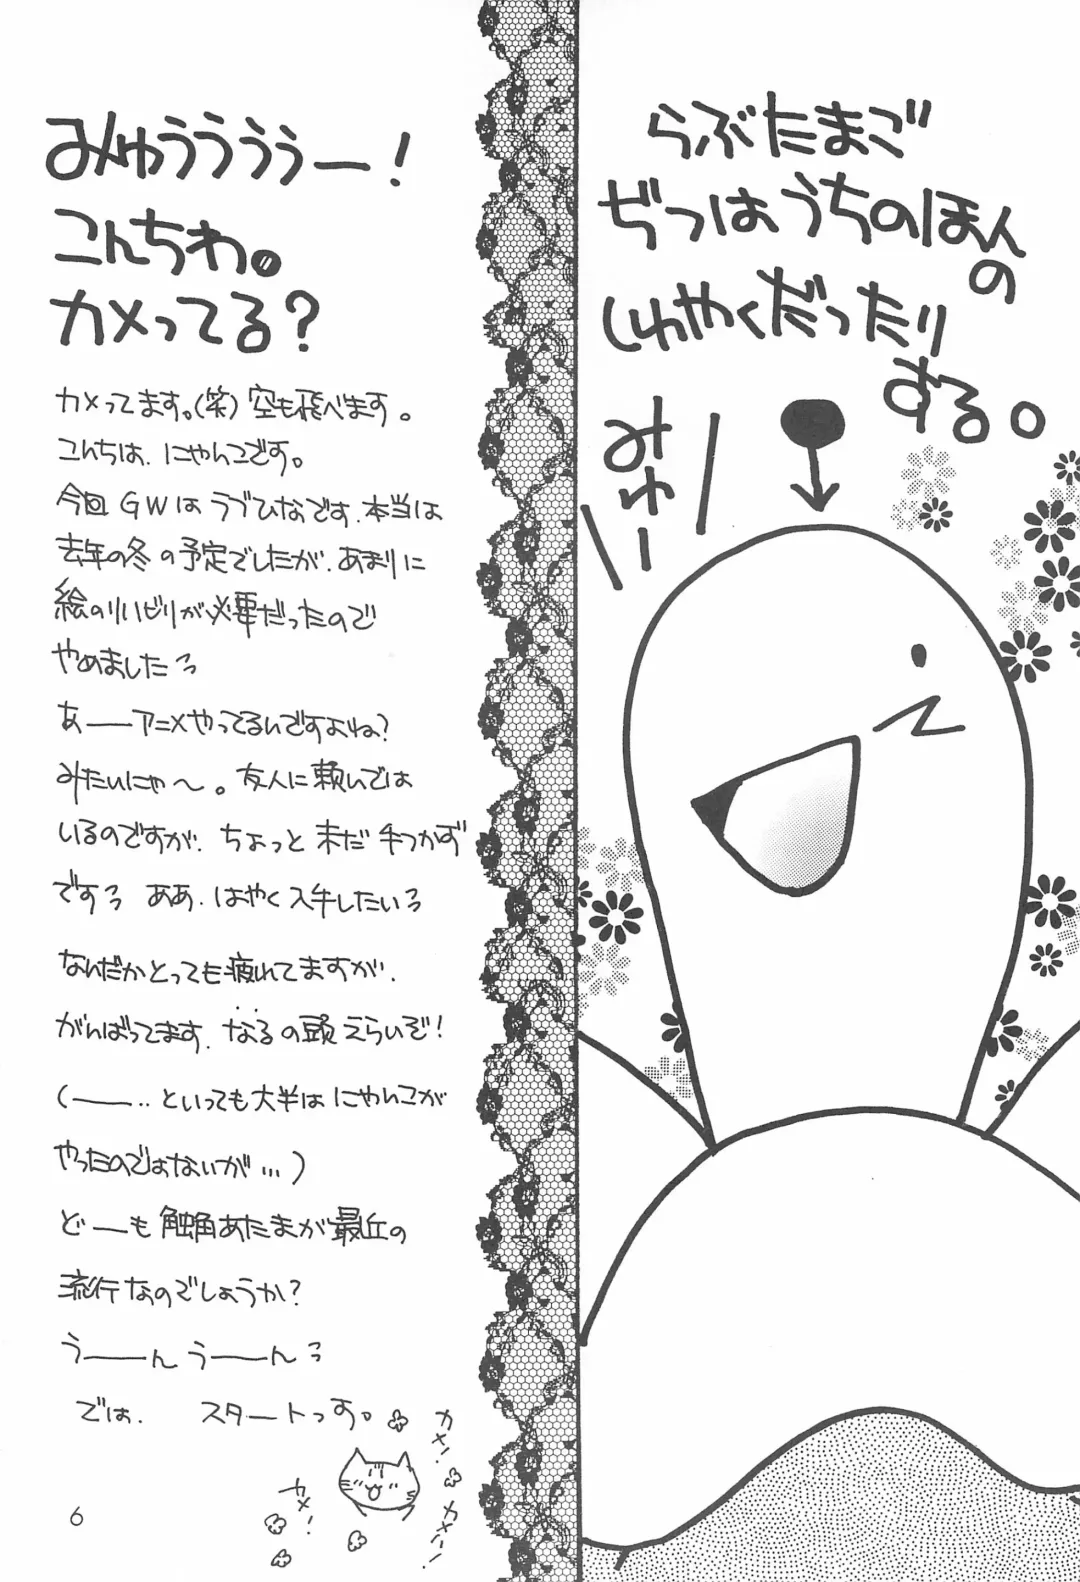 みゅうぅぅぅー!
こんちわ。
カメってる?
カメってます。(笑)空も飛べます。
こんちは、にゃんこです。
今回GWはラブひなです、本当は
去年の冬の予定でしたが、あまりに
絵のリハビリが必要だったので
やめましたっ
あーーアニメやってるんですよね?
みたいにゃ〜。友人に頼んでは
いるのですが、ちょっと未だ手つかず
ですっ ああ、はやく入手したいっ
なんだかとっても疲れてますが、
がんばってます、なるの頭えらいぞ!
(ーー‥といっても大半はにゃんこが
やったのではないが…)
どーーも触角あたまが最近の
流行なのでしょうか?
うーーんうーーんっ
では、 スタートっす。
カメ!
カメ!
カメハ!
6
らぶたまご
ぢつはうちのほん
の
しゅやくだったり
する。
みゅー